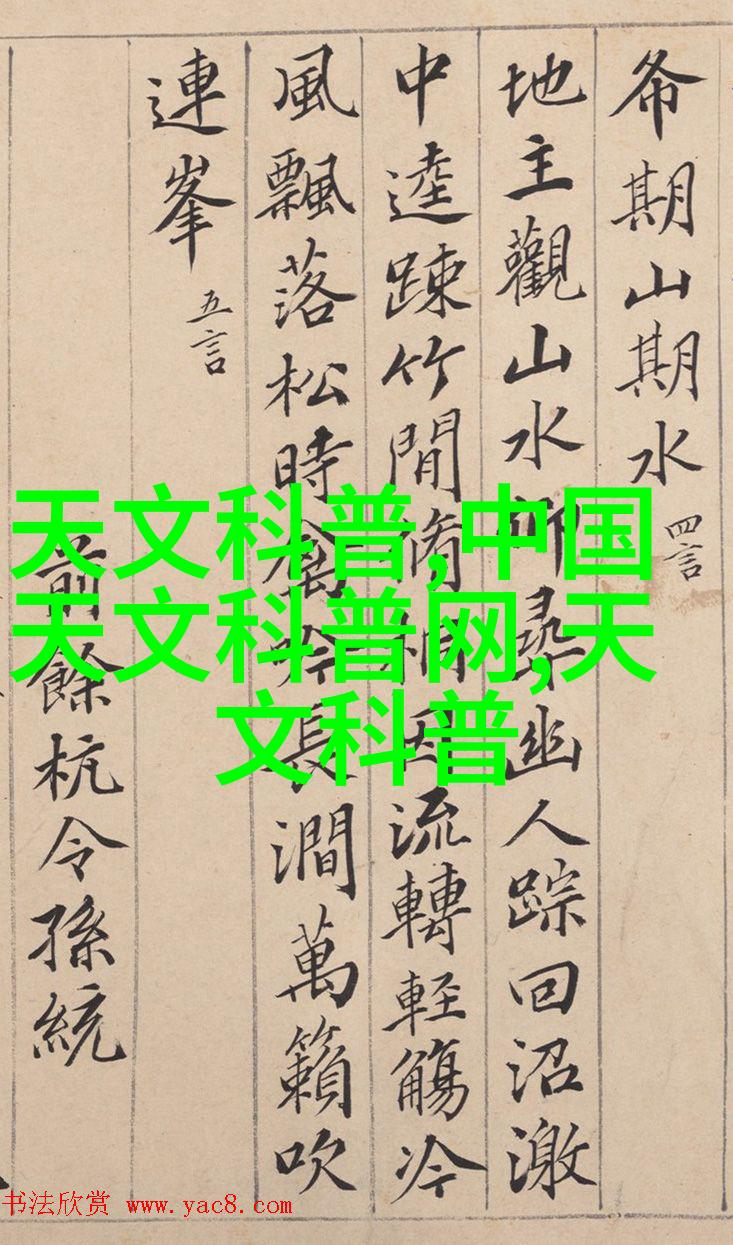 希期山期水 四言
地主觀山水仰尋幽人踪回沼激
中逵踈竹間脩桐因流轉輕觴冷
風飄落松時禽吟長澗萬籟吹
連峯 五言
前餘杭令孫統
天文科普,中国
天文科普网,天
文科普
书法欣赏 www.yac8.com